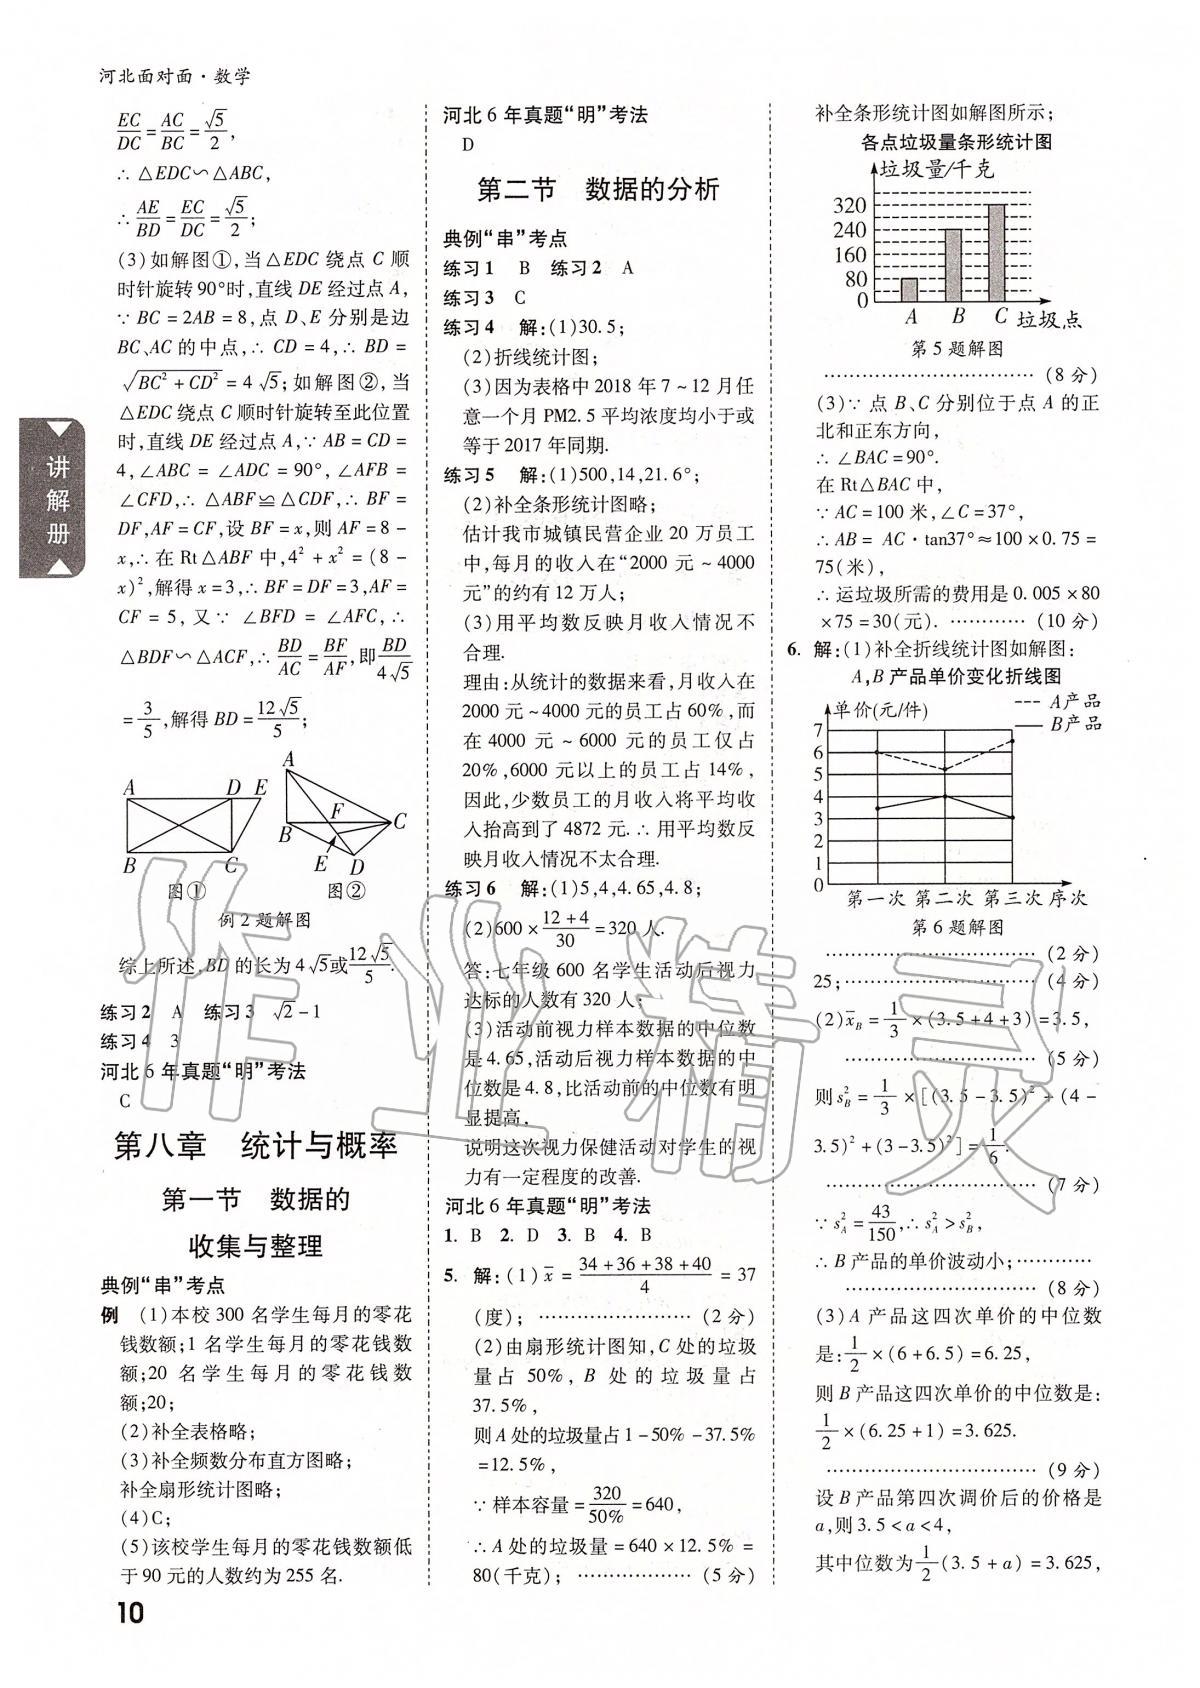 河北面对面·数学
EC/DC=AC/BC=√5/2,
∴△EDC∽△ABC,
∴AE/BD=EC/DC=√5/2;
(3)如解图①,当△EDC绕点C顺
时针旋转90°时,直线DE经过点A,
∵BC=2AB=8,点D、E分别是边
BC、AC的中点,∴CD=4,∴BD=
√BC²+CD²=4√5;如解图②,当
△EDC绕点C顺时针旋转至此位置
时,直线DE经过点A,∵AB=CD=
4,∠ABC=∠ADC=90°,∠AFB=
∠CFD,∴△ABF≌△CDF,∴BF=
DF,AF=CF,设BF=x,则AF=8-
x,∴在Rt△ABF中,4²+x²=(8-
x)²,解得x=3,∴BF=DF=3,AF=
CF=5,又∵∠BFD=∠AFC,∴
△BDF∽△ACF,∴BD/AC=BF/AF,即BD/4√5
=3/5,解得BD=12√5/5;
A D E
B C
图①
A
B F C
E D
图②
例2题解图
综上所述,BD的长为4√5或12√5/5.
练习2 A 练习3 √2-1
练习4 3
河北6年真题“明”考法
C
第八章 统计与概率
第一节 数据的
收集与整理
典例“串”考点
例 (1)本校300名学生每月的零花
钱数额;1名学生每月的零花钱数
额;20名学生每月的零花钱数
额;20;
(2)补全表格略;
(3)补全频数分布直方图略;
补全扇形统计图略;
(4)C;
(5)该校学生每月的零花钱数额低
于90元的人数约为255名.
10
讲解册
河北6年真题“明”考法
D
第二节 数据的分析
典例“串”考点
练习1 B 练习2 A
练习3 C
练习4 解:(1)30.5;
(2)折线统计图;
(3)因为表格中2018年7~12月任
意一个月PM2.5平均浓度均小于或
等于2017年同期.
练习5 解:(1)500,14,21.6°;
(2)补全条形统计图略;
估计我市城镇民营企业20万员工
中,每月的收入在“2000元~4000
元”的约有12万人;
(3)用平均数反映月收入情况不
合理.
理由:从统计的数据来看,月收入在
2000元~4000元的员工占60%,而
在4000元~6000元的员工仅占
20%,6000元以上的员工占14%,
因此,少数员工的月收入将平均收
入抬高到了4872元.∴用平均数反
映月收入情况不太合理.
练习6 解:(1)5,4,4.65,4.8;
(2)600×12+4/30=320人.
答:七年级600名学生活动后视力
达标的人数有320人;
(3)活动前视力样本数据的中位数
是4.65,活动后视力样本数据的中
位数是4.8,比活动前的中位数有明
显提高,
说明这次视力保健活动对学生的视
力有一定程度的改善.
河北6年真题“明”考法
1. B 2. D 3. B 4. B
5. 解:(1)x̄=34+36+38+40/4=37
(度);………………(2分)
(2)由扇形统计图知,C处的垃圾
量占50%,B处的垃圾量占
37.5%,
则A处的垃圾量占1-50%-37.5%
=12.5%,
∵样本容量=320/50%=640,
∴A处的垃圾量=640×12.5%=
80(千克);………………(5分)
补全条形统计图如解图所示;
各点垃圾量条形统计图
垃圾量/千克
320
240
160
80
0
A B C 垃圾点
第5题解图
………………(8分)
(3)∵点B、C分别位于点A的正
北和正东方向,
∴∠BAC=90°.
在Rt△BAC中,
∵AC=100米,∠C=37°,
∴AB=AC·tan37°≈100×0.75=
75(米),
∴运垃圾所需的费用是0.005×80
×75=30(元).…………(10分)
6. 解:(1)补全折线统计图如解图:
A,B产品单价变化折线图
单价(元/件)
A产品
B产品
7
6
5
4
3
2
1
0
第一次 第二次 第三次 序次
第6题解图
………………(2分)
25;………………(4分)
(2)x̄B=1/3×(3.5+4+3)=3.5,
………………(5分)
则s²B=1/3×[(3.5-3.5)²+(4-
3.5)²+(3-3.5)²]=1/6.
………………(7分)
∵s²A=43/150,∴s²A>s²B,
∴B产品的单价波动小;…………
………………(8分)
(3)A产品这四次单价的中位数
是:1/2×(6+6.5)=6.25,
则B产品这四次单价的中位数是:
1/2×(6.25+1)=3.625.
………………(9分)
设B产品第四次调价后的价格是
a,则3.5<a<4,
其中位数为1/2(3.5+a)=3.625,
作业精灵